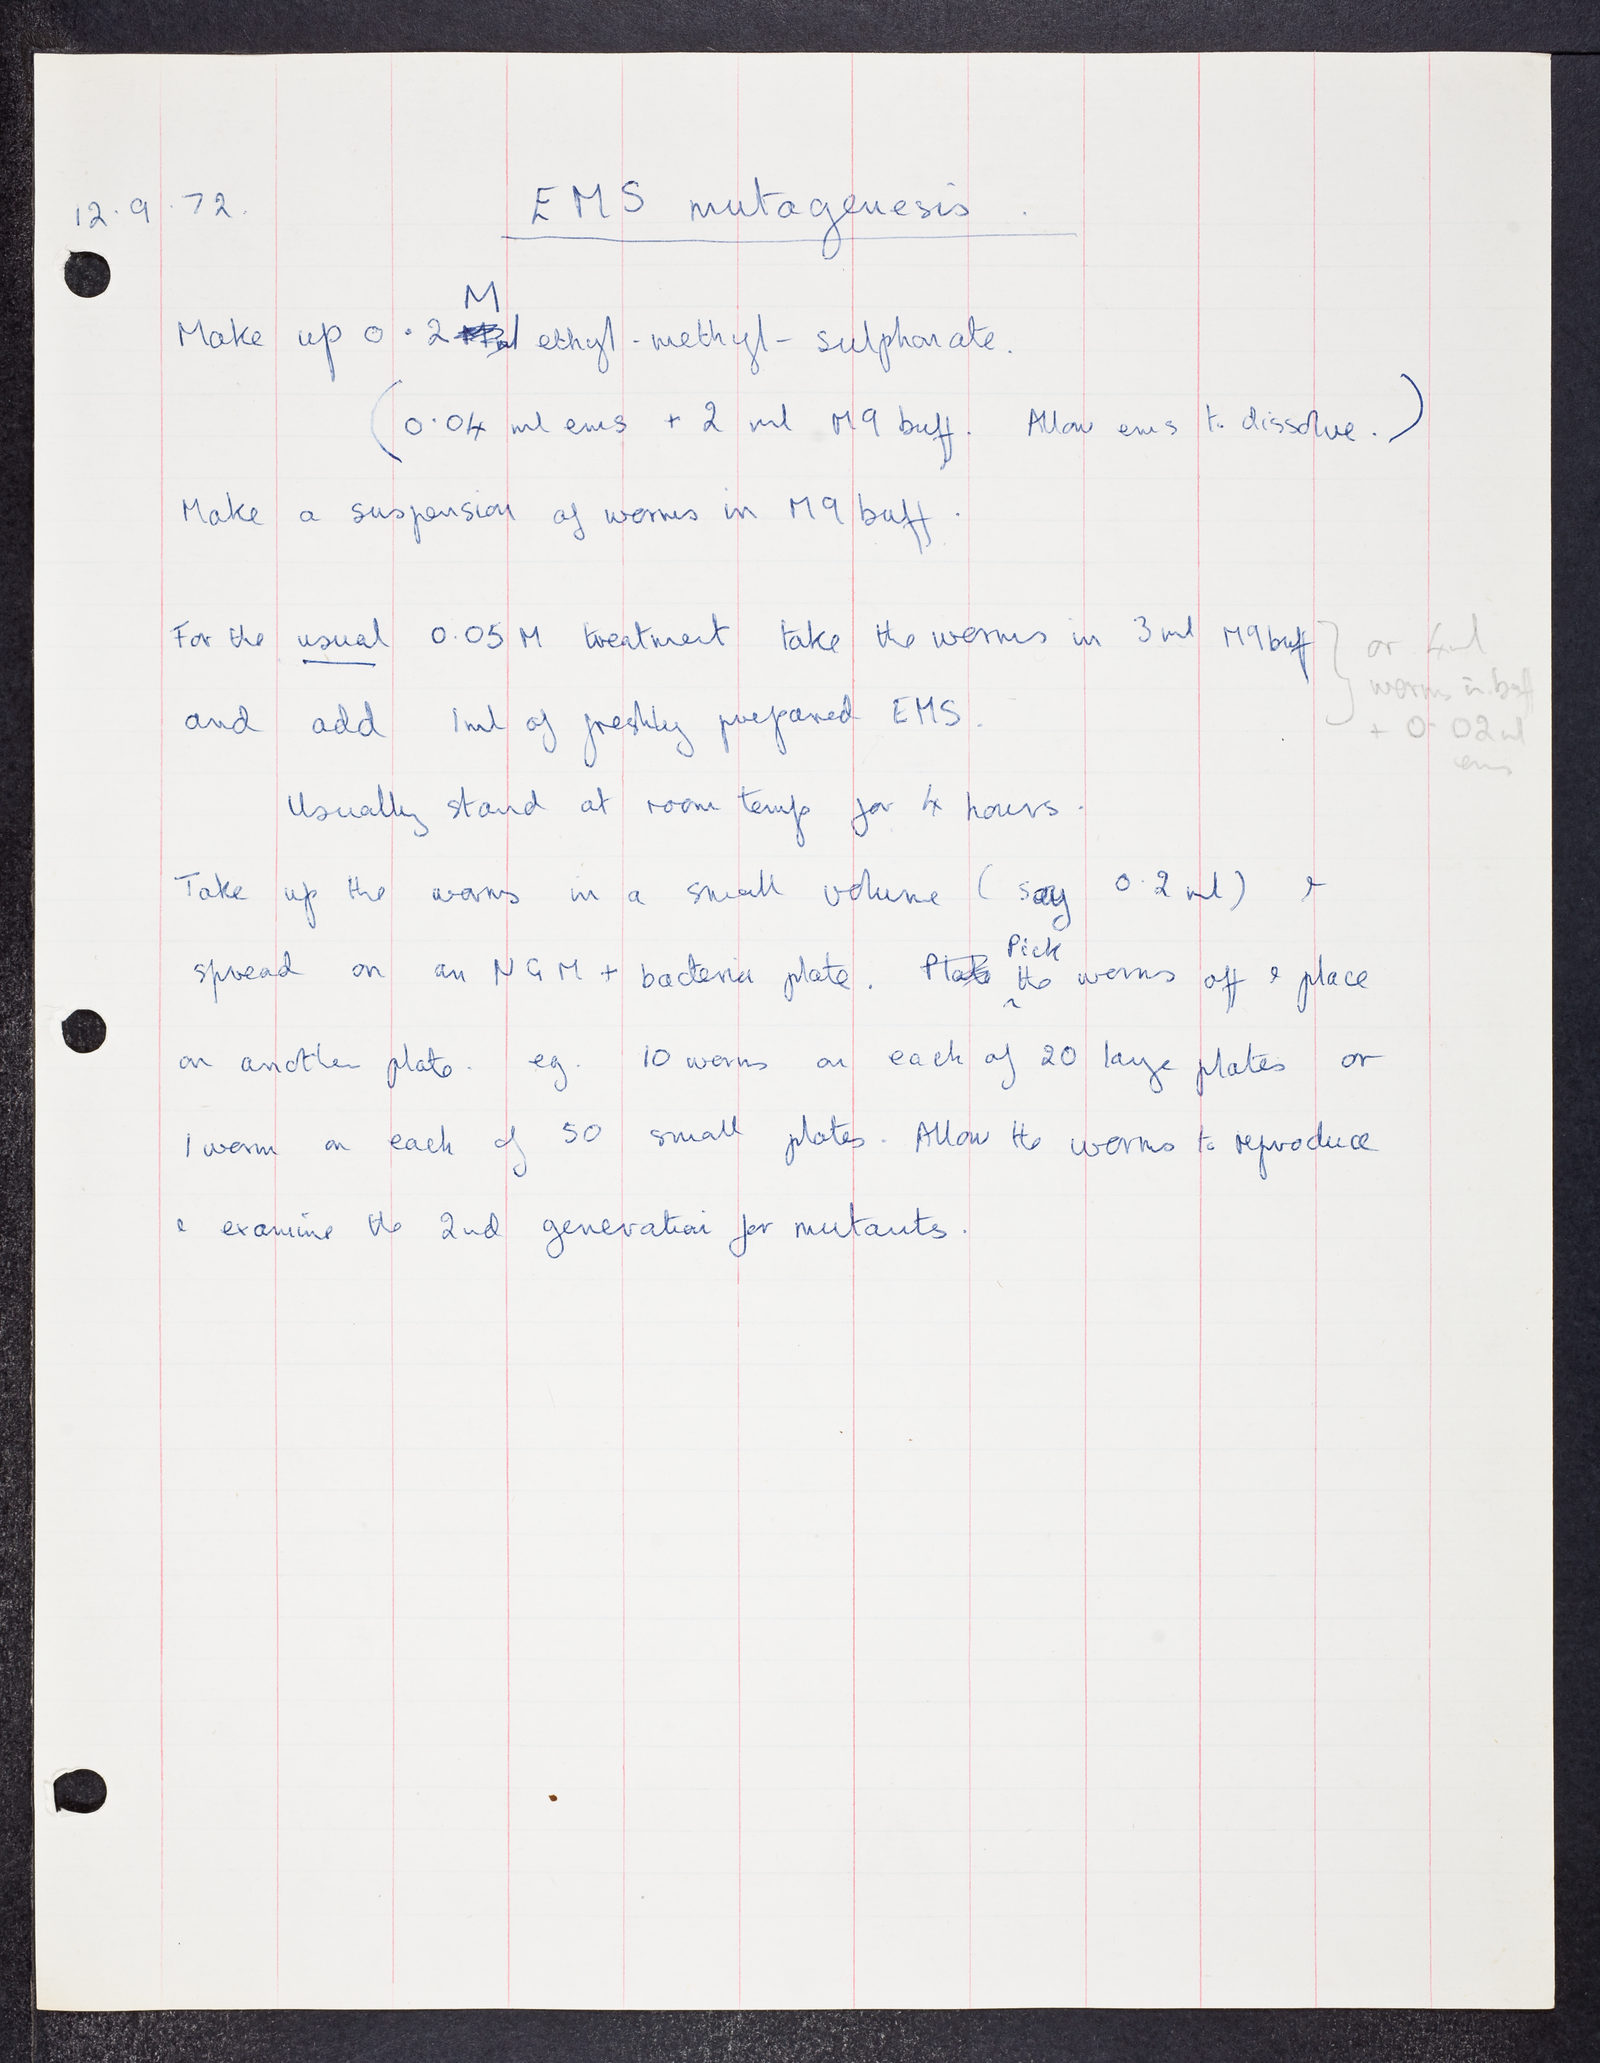 12.9.72.
EMS mutagenesis.
M
Make up 0.2 ethyl-methyl-sulphonate.
(0.04 ml ems + 2 ml M9 buff. Allow ems to dissolve.)
Make a suspension of worms in M9 buff.
For the usual 0.05 M treatment take the worms in 3 ml M9 buff
and add 1ml of freshly prepared EMS.
or 4ml
worms in buff
+ 0.02 ml
ems
Usually stand at room temp for 4 hours.
Take up the worms in a small volume (say 0.2 ml) &
Pick
spread on an NGM + bacteria plate. Plate the worms off & place
on another plate. eg. 10 worms on each of 20 large plates or
1 worm on each of 50 small plates. Allow the worms to reproduce
& examine the 2nd generation for mutants.